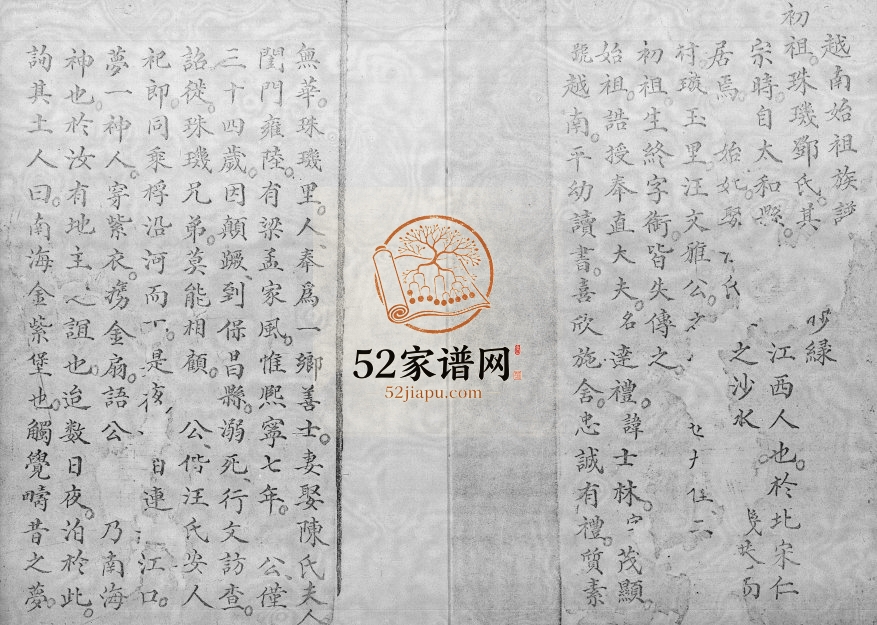 越南始祖族譜
初祖珠璣鄧氏其 江西人也於北宋仁
宗時自太和縣 之沙水
居焉 始妣娶 氏
村璇玉里汪文雅公之
初祖生終字銜皆失傳之
始祖誥授奉直大夫名達禮諱士林字茂顯
號越南平幼讀書喜欣施舍忠誠有禮質素
無華珠璣里人奉為一鄉善士妻娶陳氏夫人
閨門雍陸有梁孟家風惟熙寧七年 公僅
三十四歲因顛蹶到保昌縣溺死行文訪查
詔從珠璣兄弟莫能相顧 公偕汪氏安人
祀郎同乘桴沿河而下是夜 泊連 江口
夢一神人穿紫衣 金扇語公 乃南海
神也於汝有地主之誼也迨数日夜泊於此
詢其土人曰南海金紫堡也觸覺疇昔之夢
52家谱网
52jiapu.com